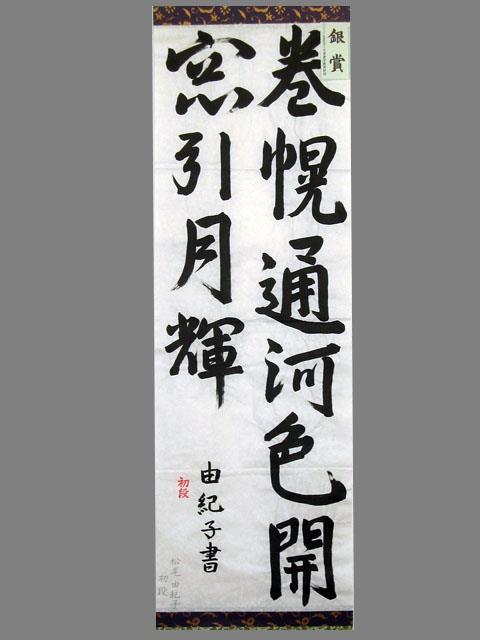 銀賞
巻幌通河色開
窓引月輝
由紀子書
初段
松尾由紀子
初段